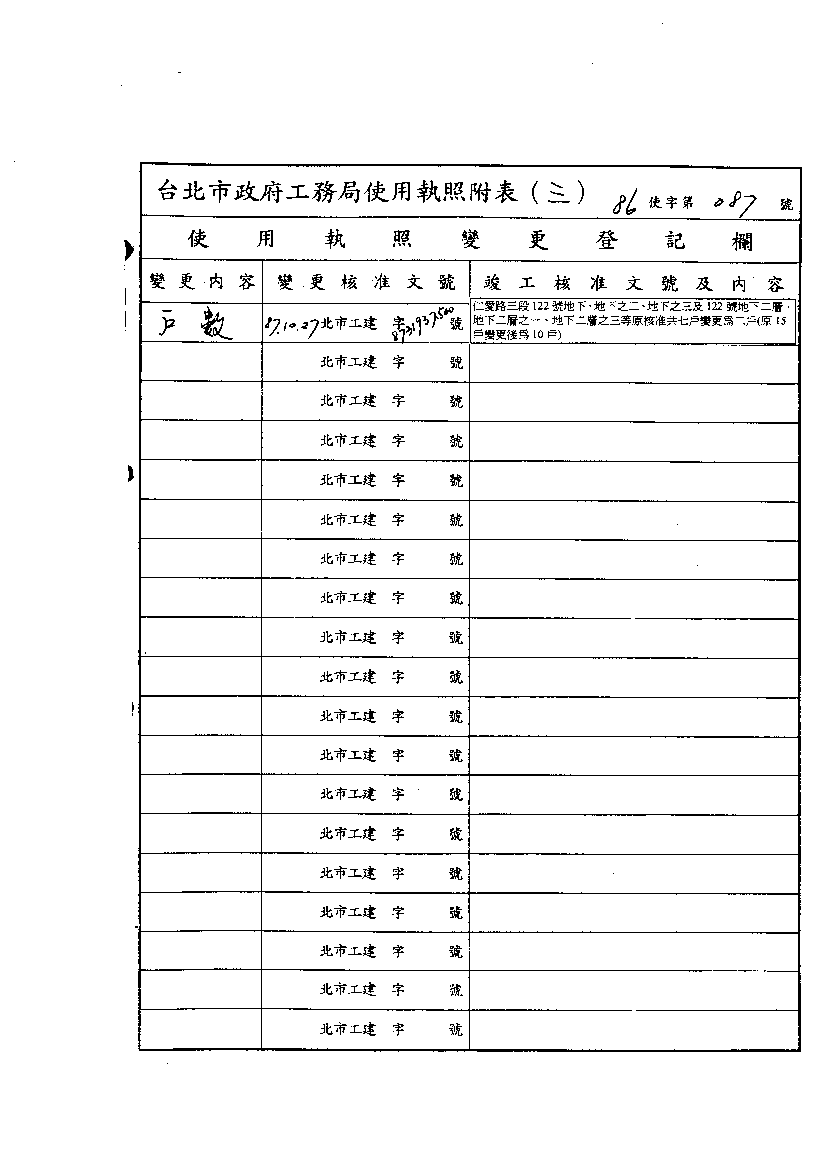 台北市政府工務局使用執照附表(三) 86 使字第 087 號
使用執照變更登記欄
變更內容 變更核准文號 竣工核准文號及內容
戶數 87.10.27北市工建 字8731937500號 仁愛路三段122號地下、地下之二、地下之三及122號地下二層、
地下二層之一、地下二層之三等原核准共七戶變更為二戶(原15
戶變更後為10戶)
北市工建 字 號
北市工建 字 號
北市工建 字 號
北市工建 字 號
北市工建 字 號
北市工建 字 號
北市工建 字 號
北市工建 字 號
北市工建 字 號
北市工建 字 號
北市工建 字 號
北市工建 字 號
北市工建 字 號
北市工建 字 號
北市工建 字 號
北市工建 字 號
北市工建 字 號
北市工建 字 號